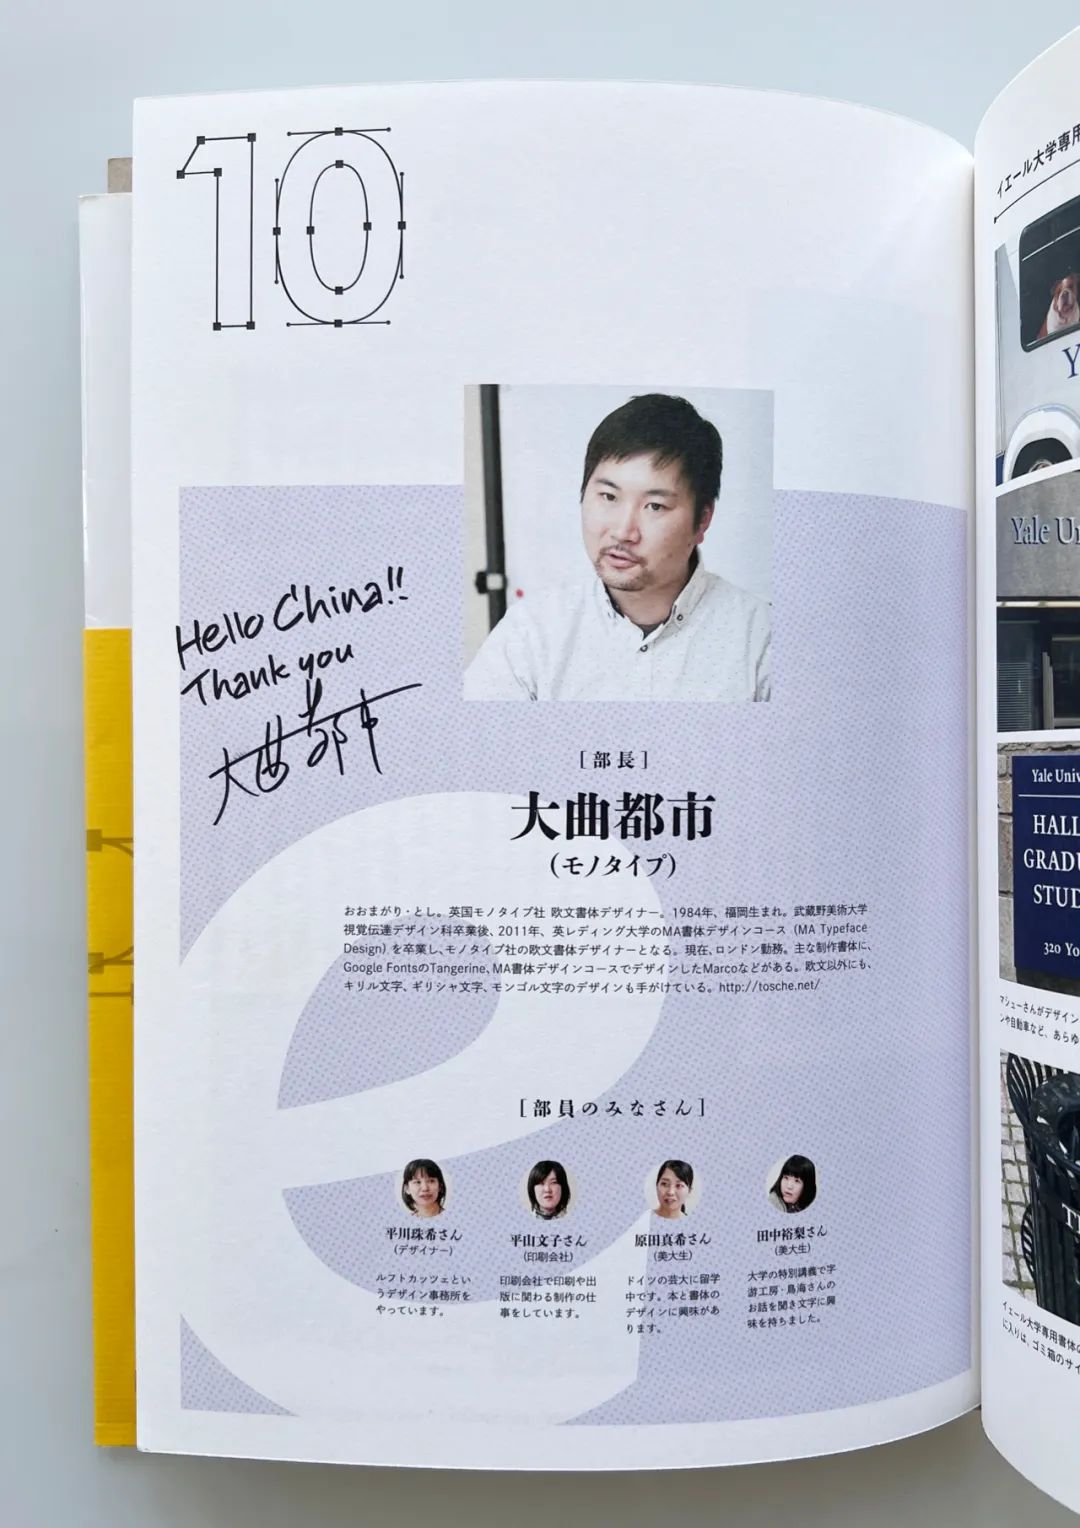 10
Hello China!!
Thank you
大曲都市
[部長]
大曲都市
(モノタイプ)
おおまがり・とし。英国モノタイプ社 欧文書体デザイナー。1984年、福岡生まれ。武蔵野美術大学
視覚伝達デザイン科卒業後、2011年、英レディング大学のMA書体デザインコース(MA Typeface
Design)を卒業し、モノタイプ社の欧文書体デザイナーとなる。現在、ロンドン勤務。主な制作書体に、
Google FontsのTangerine、MA書体デザインコースでデザインしたMarcoなどがある。欧文以外にも、
キリル文字、ギリシャ文字、モンゴル文字のデザインも手がけている。http://tosche.net/
[部員のみなさん]
平川珠希さん
(デザイナー)
ルフトカッツェとい
うデザイン事務所を
やっています。
平山文子さん
(印刷会社)
印刷会社で印刷や出
版に関わる制作の仕
事をしています。
原田真希さん
(美大生)
ドイツの芸大に留学
中です。本と書体の
デザインに興味があ
ります。
田中裕梨さん
(美大生)
大学の特別講義で字
游工房・鳥海さんの
お話を聞き文字に興
味を持ちました。
イエール大学専用
Y
Yale Un
Yale Univ
HALL
GRADU
STUD
320 Yo
マシューさんがデザイン
ンや自動車など、あらゆ
イエール大学専用書体の
に入りは、ゴミ箱のサイ